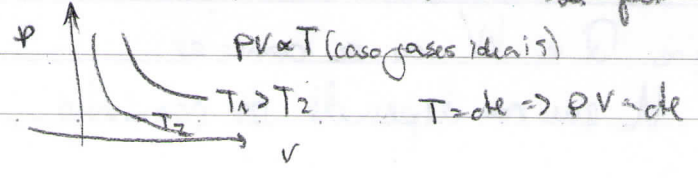 p
pV ∝ T (caso gases ideais)
T₁ > T₂
T = cte => pV = cte
T₂
V